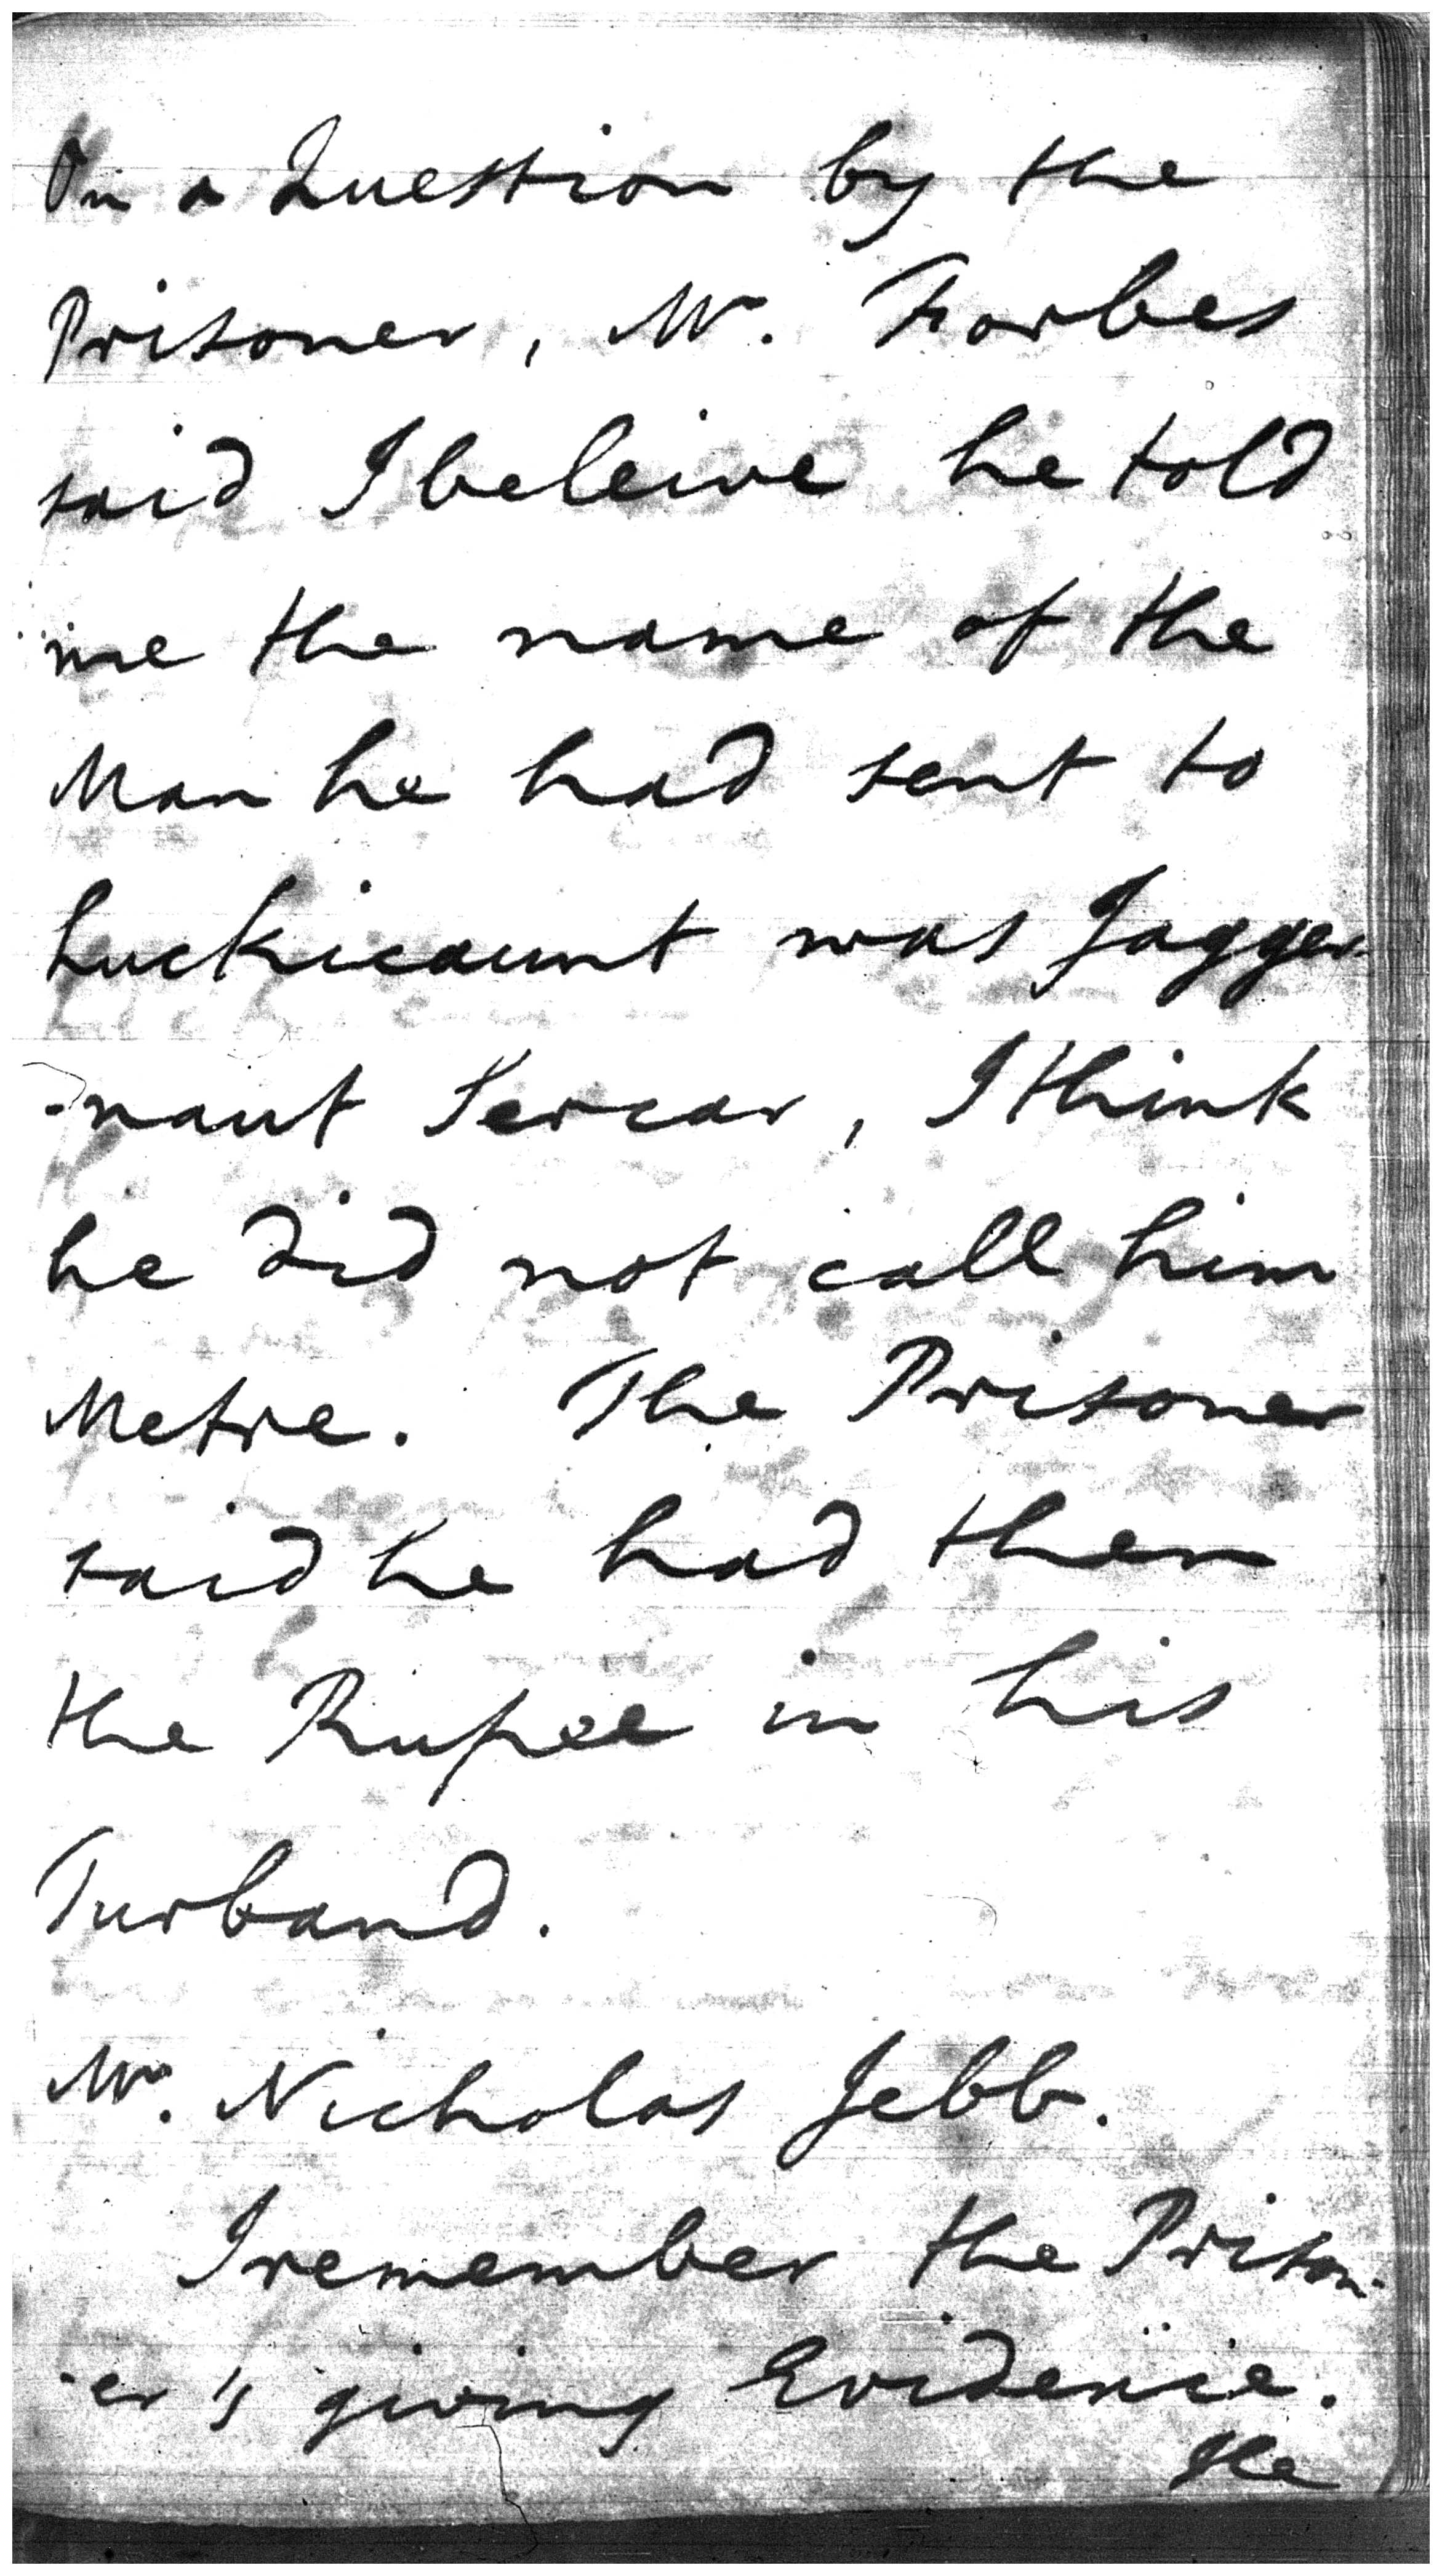 On a Question by the
Prisoner, Mr. Forbes
said I beleive he told
me the name of the
Man he had sent to
Luckicaunt was Jagger-
-naut Sercar, I think
he did not call him
Metre. The Prisoner
said he had then
the Rupee in his
Turband.
Mr. Nicholas Jebb.
I remember the Prison-
-er's giving Evidence.
He